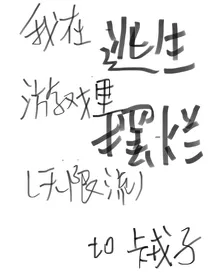 我在逃生
游戏里摆烂
(无限流)
to 卡戎子